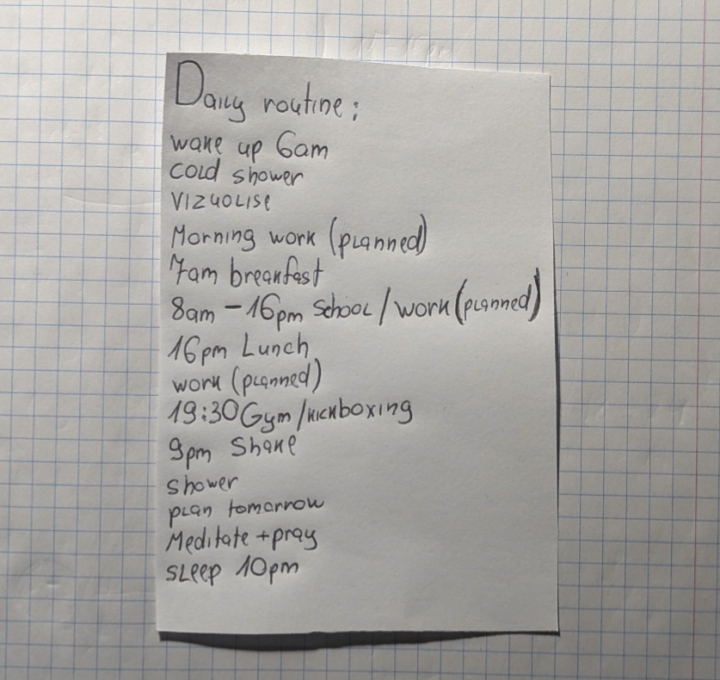 Daily routine:
wake up 6am
cold shower
vizualise
Morning work (planned)
7am breakfast
8am - 16pm school/work (planned)
16pm Lunch
work (planned)
19:30 Gym/kickboxing
9pm Shake
shower
plan tomorrow
Meditate + pray
sleep 10pm